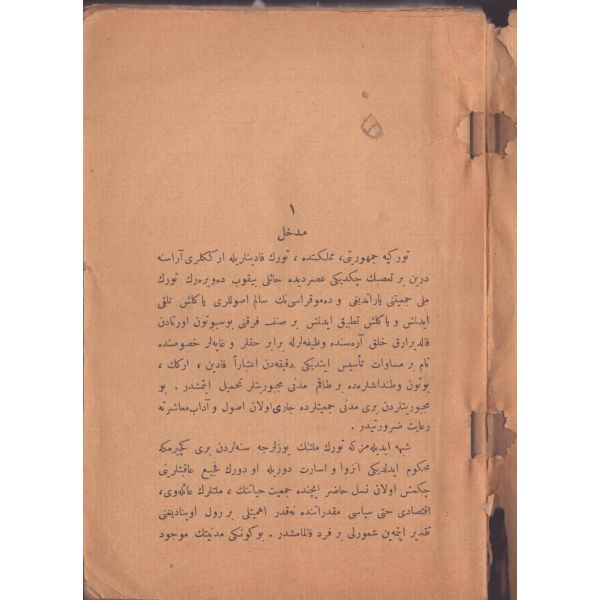 ١
مدخل
توركیه جمهوریتی، مملكتنده، تورك قادینلریله ارككلری آراسنه
درین بر تعصبك چكدیكی عصردیده حائلی ییقوب ده‌ویره‌رك تورك
ملی جمعیتنی یاراتدیغی و ده‌موقراسی‌نك سالم اصوللری یاكلش تلقی
ایدلمش و یاكلش تطبیق ایدلمش بر صنف فرقنی بوسبوتون اورتادن
قالدیرارق خلق آره‌سنده وظیفه‌لرله برابر حقلر و غایه‌لر خصوصنده
تام بر مساوات تأسیس ایتدیكی دقیقه‌دن اعتباراً قادین، اركك،
بوتون وطنداشلره‌ده بر طاقم مدنی مجبوریتلر تحمیل ایتمشدر. بو
مجبوریتلردن بری مدنی جمعیتلرده جاری اولان اصول و آداب معاشرته
رعایت ضرورتیدر.
شبهه ایدیله‌مز كه تورك ملتنك یوزلرجه سنه‌لردن بری كچیرمكه
محكوم ایدلدیكی انزوا و اسارت دوریله او دورك فجیع عاقبتلرینی
چكمش اولان نسل حاضر ایچنده جمعیت حیاتنك، ملتلرك عائله‌وی،
اقتصادی حتی سیاسی مقدراتنده نه‌قدر اهمیتلی بر رول اوینادیغنی
تقدیر ایتمه‌ین شعورلی بر فرد قالمامشدر. بوكونكی مدنیتك موجود